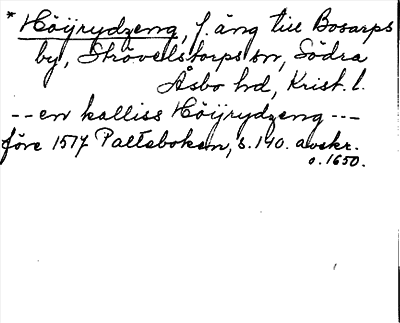 * Höijrydzeng, f. äng till Bosarps
by, Strövelstorps sn, Södra
Åsbo hd, Krist. l.
-- en kalliss Höijrydzeng ---
före 1517 Paltebokens, s. 140. avskr.
o. 1650.